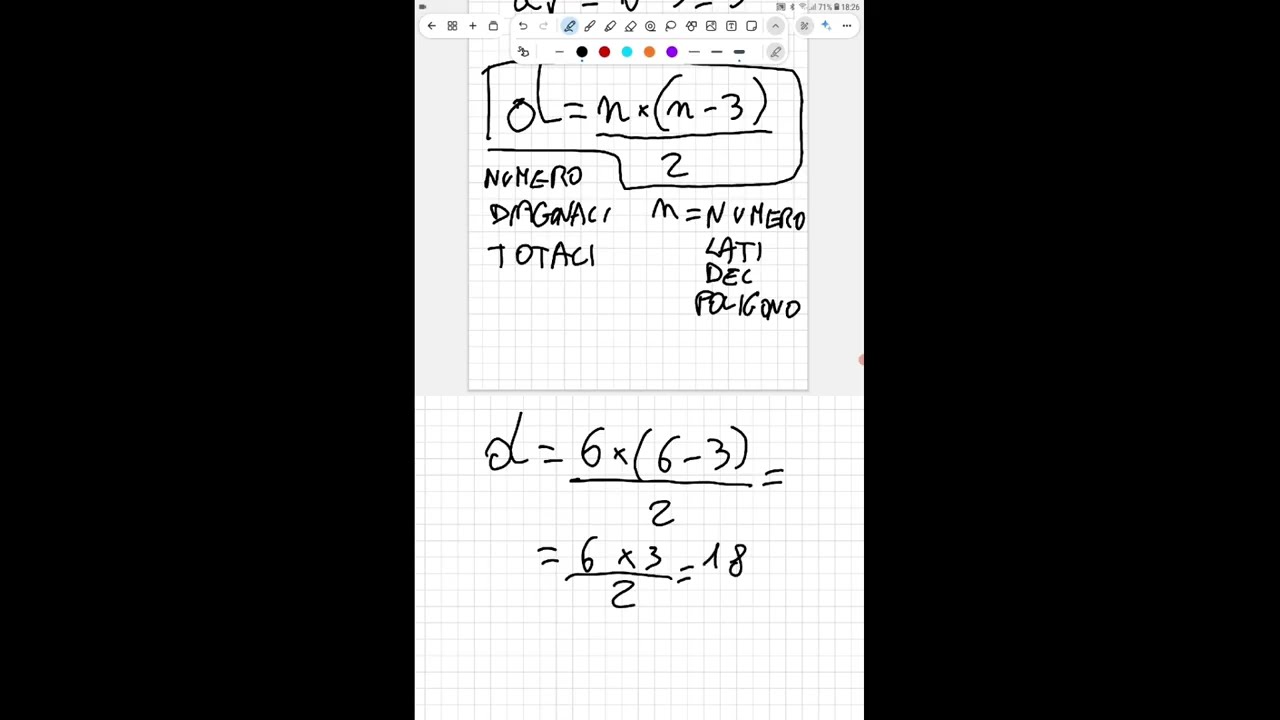 71% 18:26
d = n × (n - 3)
2
NUMERO
DIAGONALI
TOTALI
n = NUMERO
LATI
DEL
POLIGONO
d = 6 × (6 - 3) =
2
= 6 × 3 = 18
2